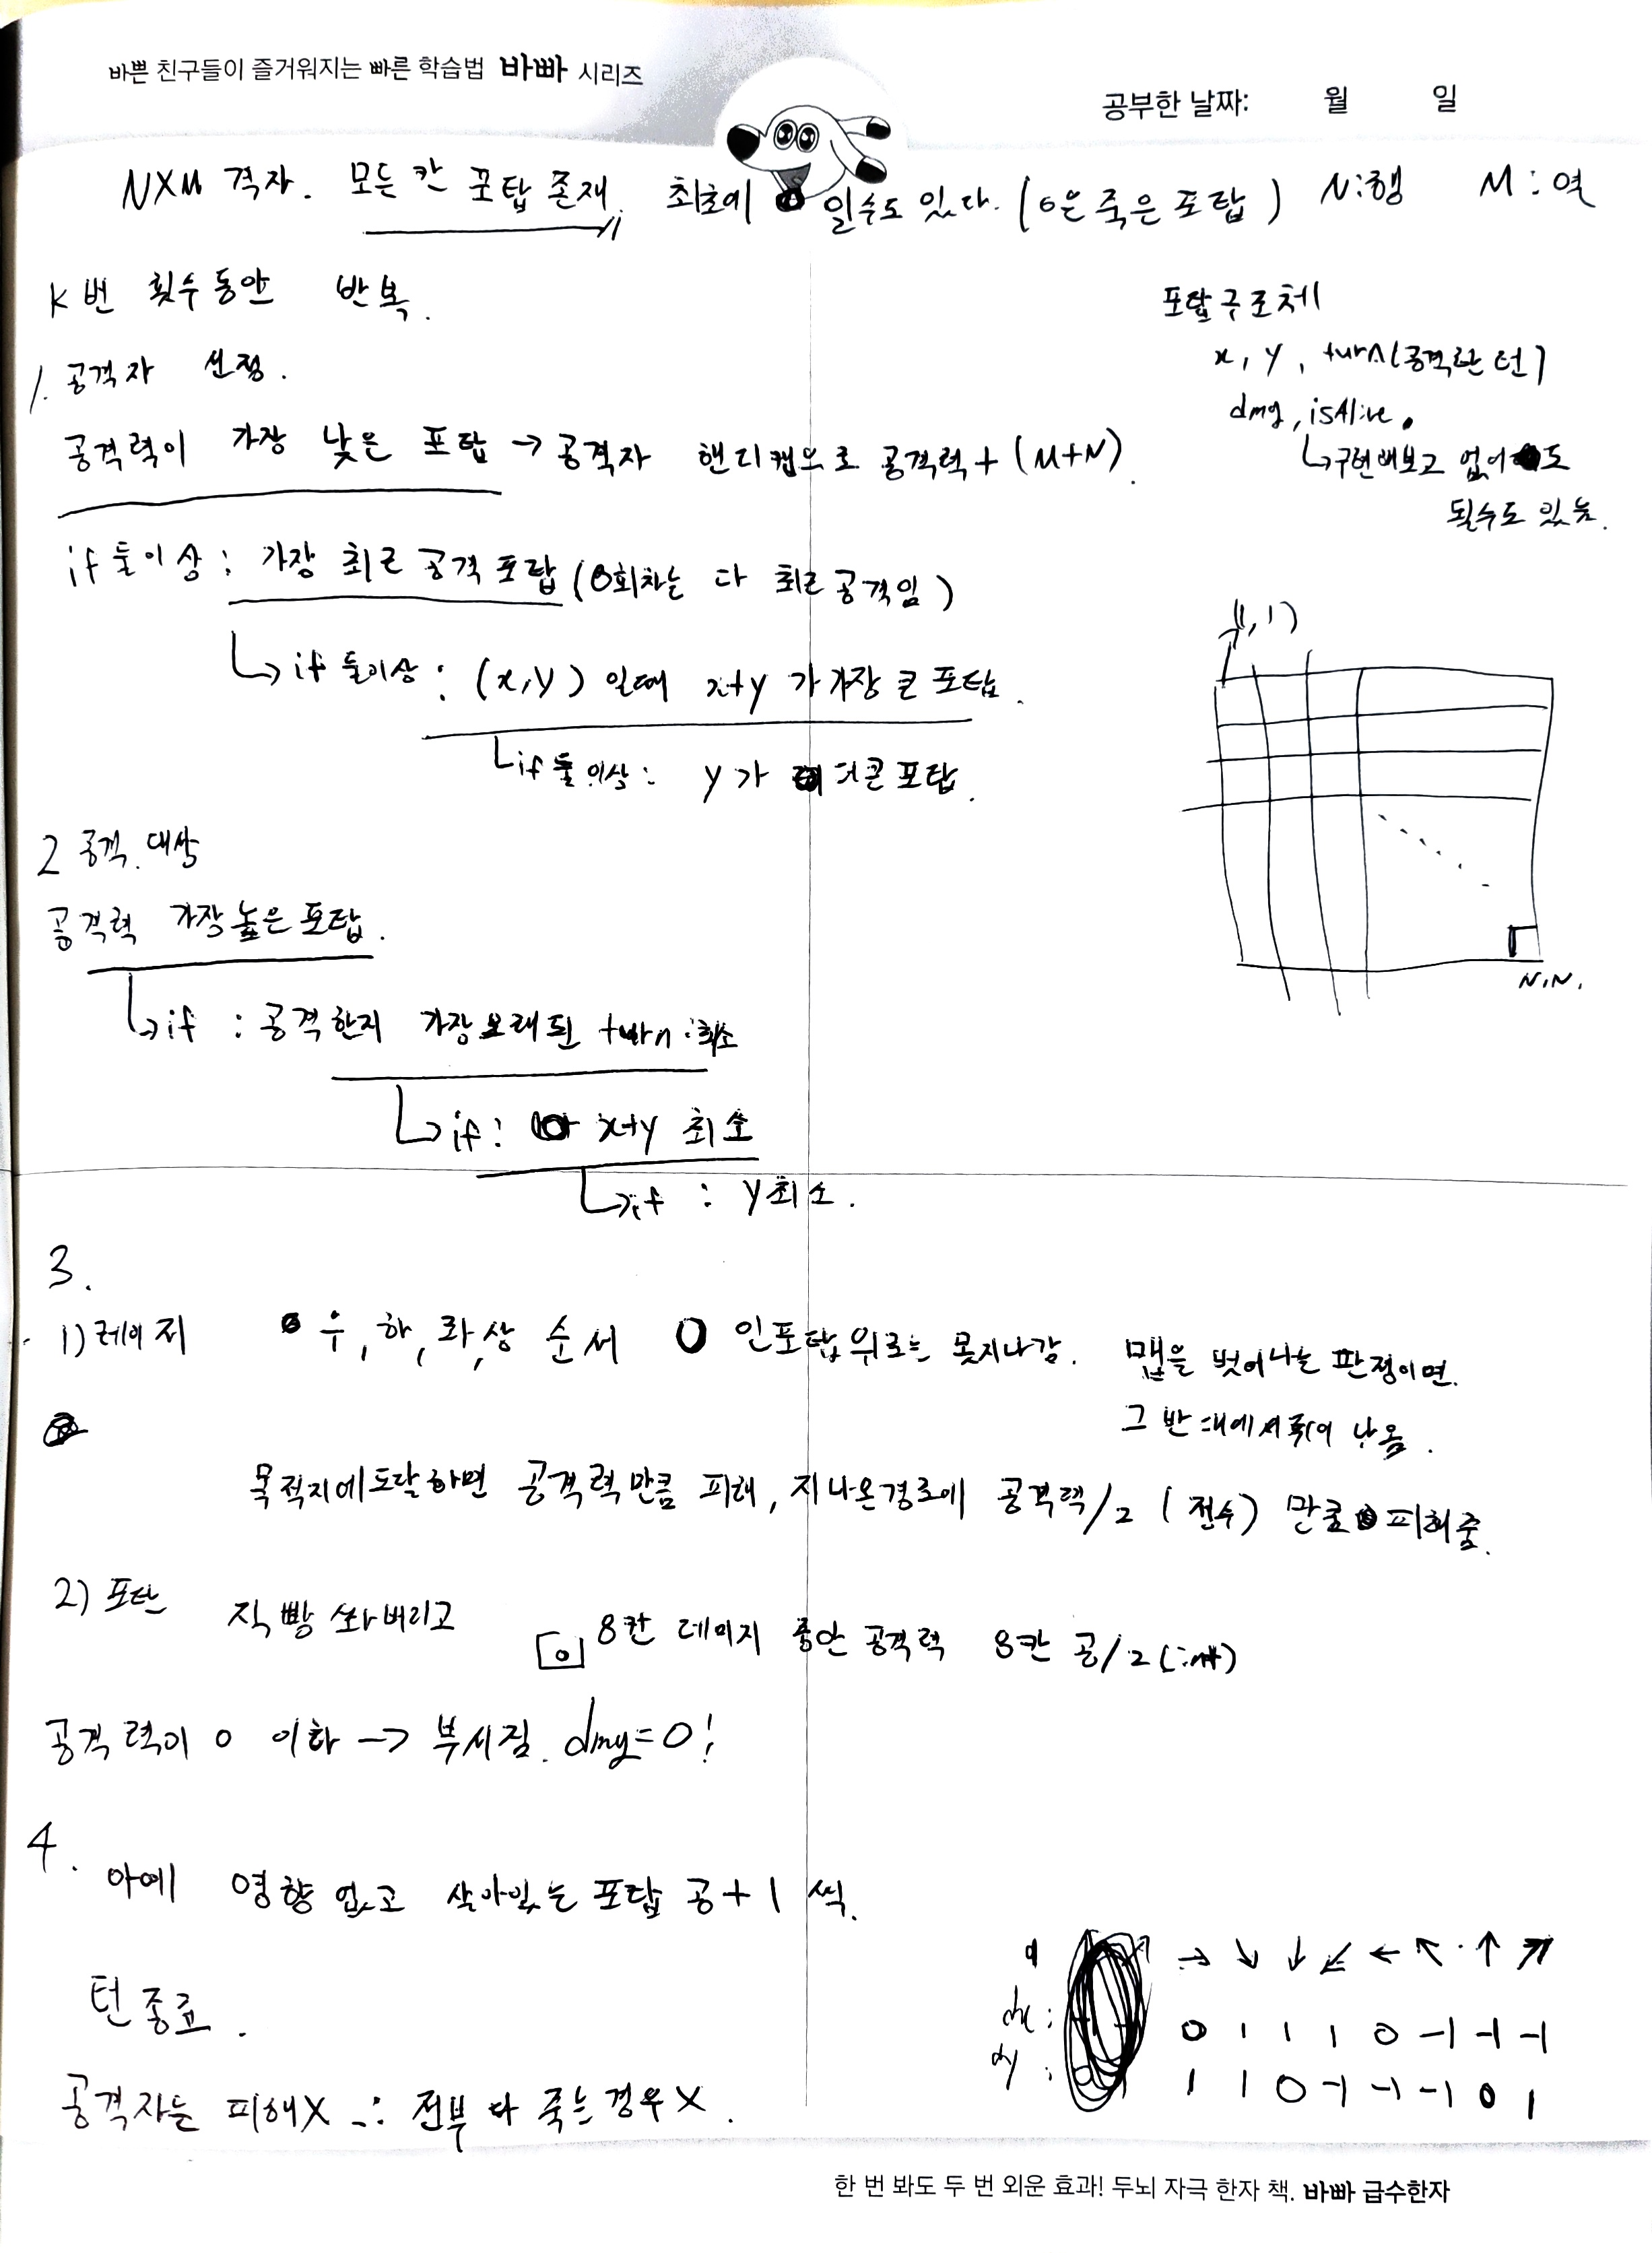 바쁜 친구들이 즐거워지는 빠른 학습법 바빠 시리즈
공부한 날짜: 월 일
NXM 격자. 모든 칸 포탑 존재. 최초에 0 일수도 있다. (0은 죽은 포탑) N:행 M:열
K번 횟수동안 반복.
포탑구조체
x, y, turn(공격한 턴)
dmg, isAlive.
↳구현해보고 없어도
될수도 있음.
1. 공격자 선정.
공격력이 가장 낮은 포탑 → 공격자 핸디캡으로 공격력+(M+N).
if 둘이상: 가장 최근 공격 포탑 (0회차는 다 최근 공격임)
↳if 둘이상: (x,y) 일때 x+y 가 가장 큰 포탑.
↳if 둘 이상: y가 더큰포탑.
(1,1)
N,N.
2 공격.대상
공격력 가장높은포탑.
↳if : 공격한지 가장오래된 turn:최소
↳if: x+y 최소
↳if : y최소.
3.
1) 레이저 우,하,좌,상 순서 0 인포탑위로는 못지나감. 맵을 벗어나는 판정이면.
그 반대에서튀어 나옴.
목적지에도달하면 공격력만큼 피해, 지나온경로에 공격력/2 (정수) 만큼 피해줌.
2) 포탄 직빵 쏴버리고 8칸 데미지 중앙 공격력 8칸 공/2(int)
공격력이 0 이하 → 부서짐. dmg=0!
4.
아예 영향없고 살아있는 포탑 공+1 씩.
턴 종료.
공격자는 피해X ∴ 전부 다 죽는경우X.
d → ↘ ↓ ↙ ← ↖ ↑ ↗
dx: 0 1 1 1 0 -1 -1 -1
dy: 1 1 0 -1 -1 -1 0 1
한 번 봐도 두 번 외운 효과! 두뇌 자극 한자 책. 바빠 급수한자